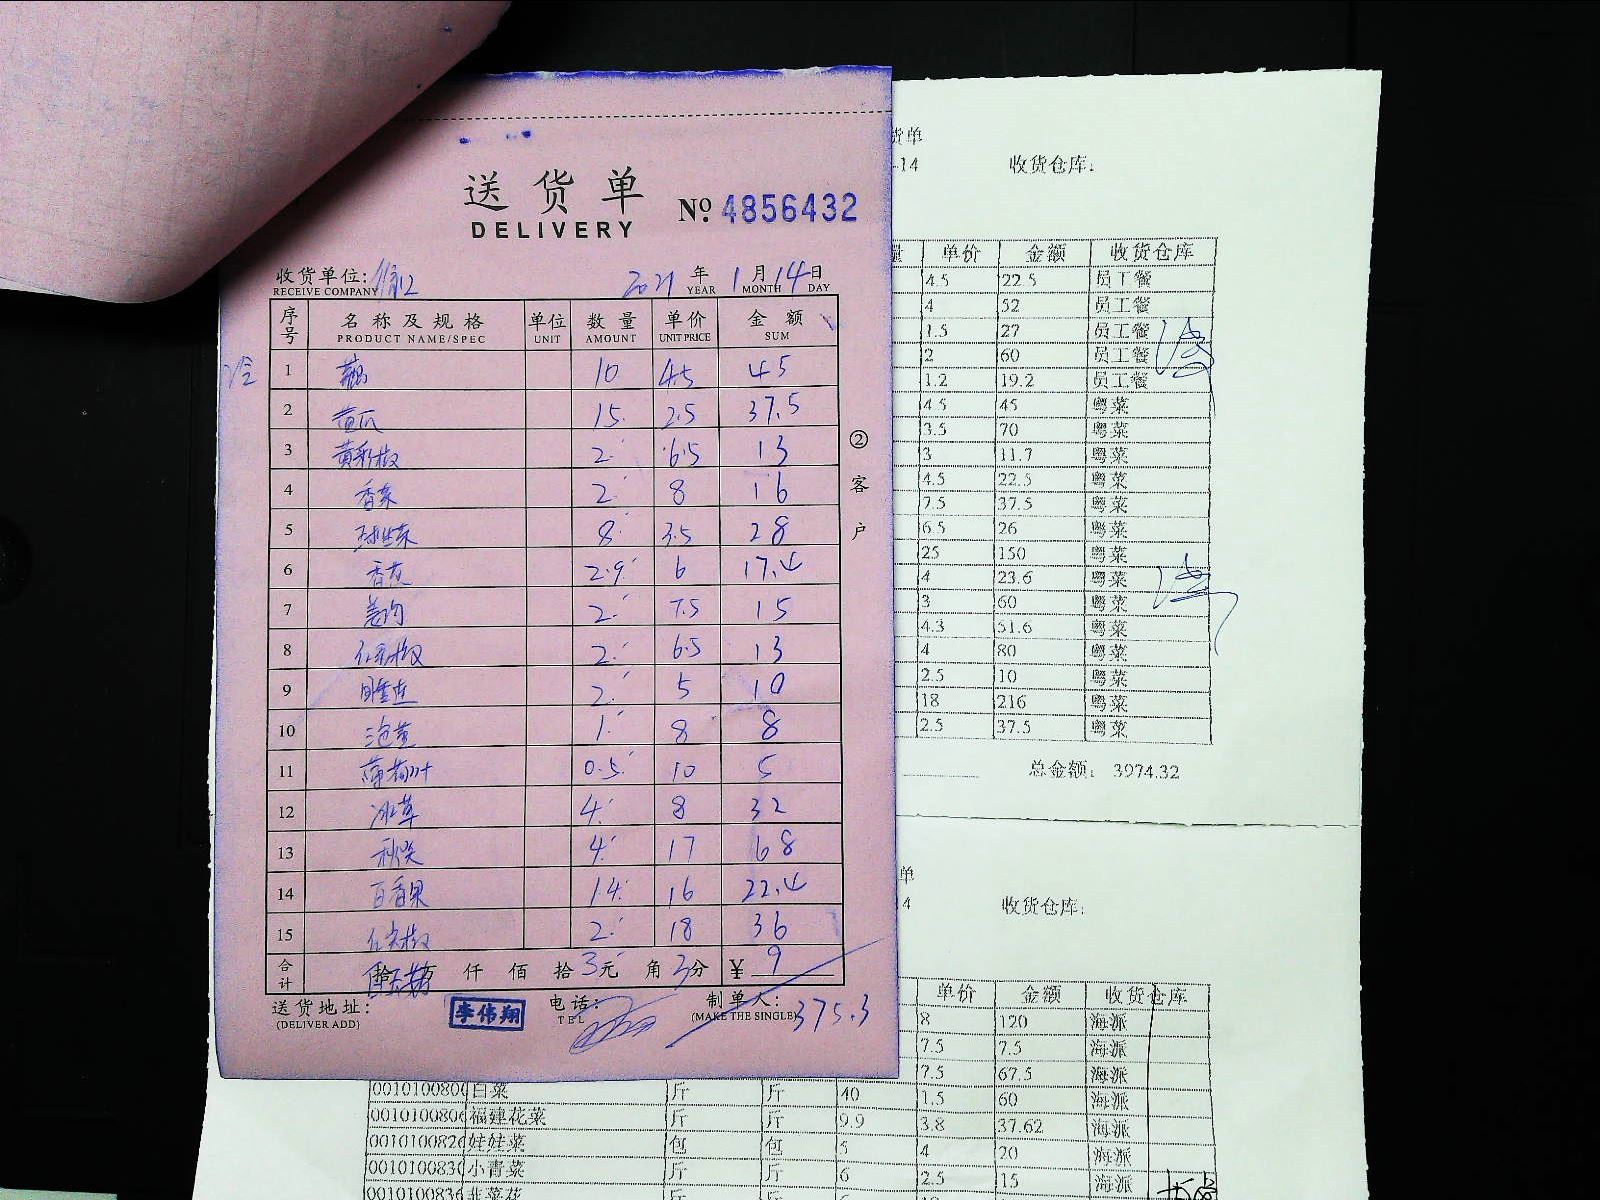 送货单
DELIVERY
№ 4856432
收货单位:
RECEIVE COMPANY
2021 年 1 月 14 日
YEAR MONTH DAY
序号 名称及规格 单位 数量 单价 金额
PRODUCT NAME/SPEC UNIT AMOUNT UNIT PRICE SUM
冷
1 10 4.5 45
2 黄瓜 15 2.5 37.5
3 黄彩椒 2 6.5 13
4 香菜 2 8 16
5 球生菜 8 3.5 28
6 2.9 6 17.4
7 2 7.5 15
8 红彩椒 2 6.5 13
9 2 5 10
10 1 8 8
11 薄荷叶 0.5 10 5
12 冰草 4 8 32
13 秋葵 4 17 68
14 百香果 1.4 16 22.4
15 红尖椒 2 18 36
合计 拾 万 仟 佰 拾 3 元 角 3 分 ¥ 9
送货地址:
(DELIVER ADD)
李伟翔
电话:
TEL
制单人:
(MAKE THE SINGLE)
375.3
② 客户
货单
-14 收货仓库:
量 单价 金额 收货仓库
4.5 22.5 员工餐
4 52 员工餐
1.5 27 员工餐
2 60 员工餐
1.2 19.2 员工餐
4.5 45 粤菜
3.5 70 粤菜
3 11.7 粤菜
4.5 22.5 粤菜
7.5 37.5 粤菜
6.5 26 粤菜
25 150 粤菜
4 23.6 粤菜
3 60 粤菜
4.3 51.6 粤菜
4 80 粤菜
2.5 10 粤菜
18 216 粤菜
2.5 37.5 粤菜
总金额: 3974.32
单
4 收货仓库:
单价 金额 收货仓库
8 120 海派
7.5 7.5 海派
7.5 67.5 海派
001010080 白菜 斤 斤 40 1.5 60 海派
001010080 福建花菜 斤 斤 9.9 3.8 37.62 海派
001010082 娃娃菜 包 包 5 4 20 海派
001010083 小青菜 斤 斤 6 2.5 15 海派
001010083 韭菜花 斤 斤